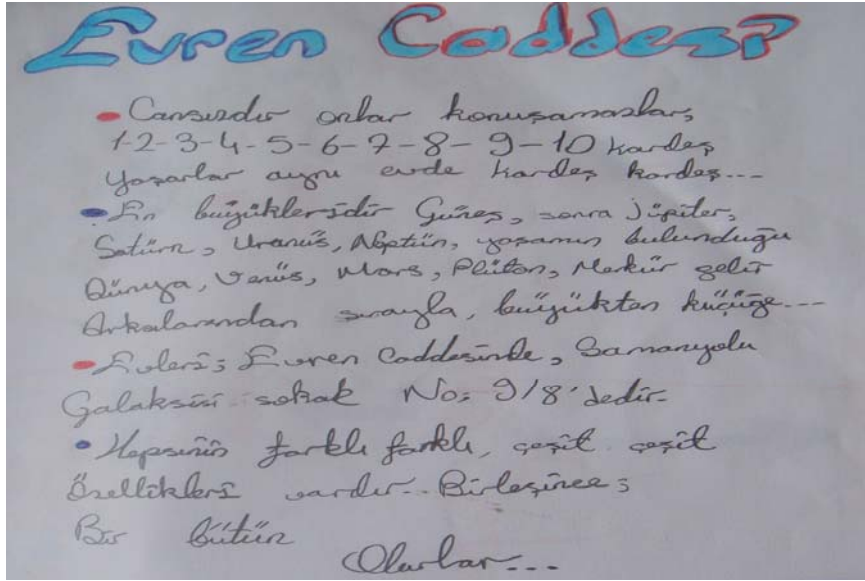 Evren Caddesi
Cansızdır onlar konuşamazlar,
1-2-3-4-5-6-7-8-9-10 kardeş
Yaşarlar aynı evde kardeş kardeş...
En büyükleridir Güneş, sonra Jüpiter,
Satürn, Uranüs, Neptün, yaşamın bulunduğu
Dünya, Venüs, Mars, Plüton, Merkür gelir
Arkalarından sırayla, büyükten küçüğe...
Evleri; Evren Caddesinde, Samanyolu
Galaksisi sokak No: 9/8'dedir.
Hepsinin farklı farklı, çeşit çeşit
Özellikleri vardır.. Birleşince;
Bir bütün
Olurlar...